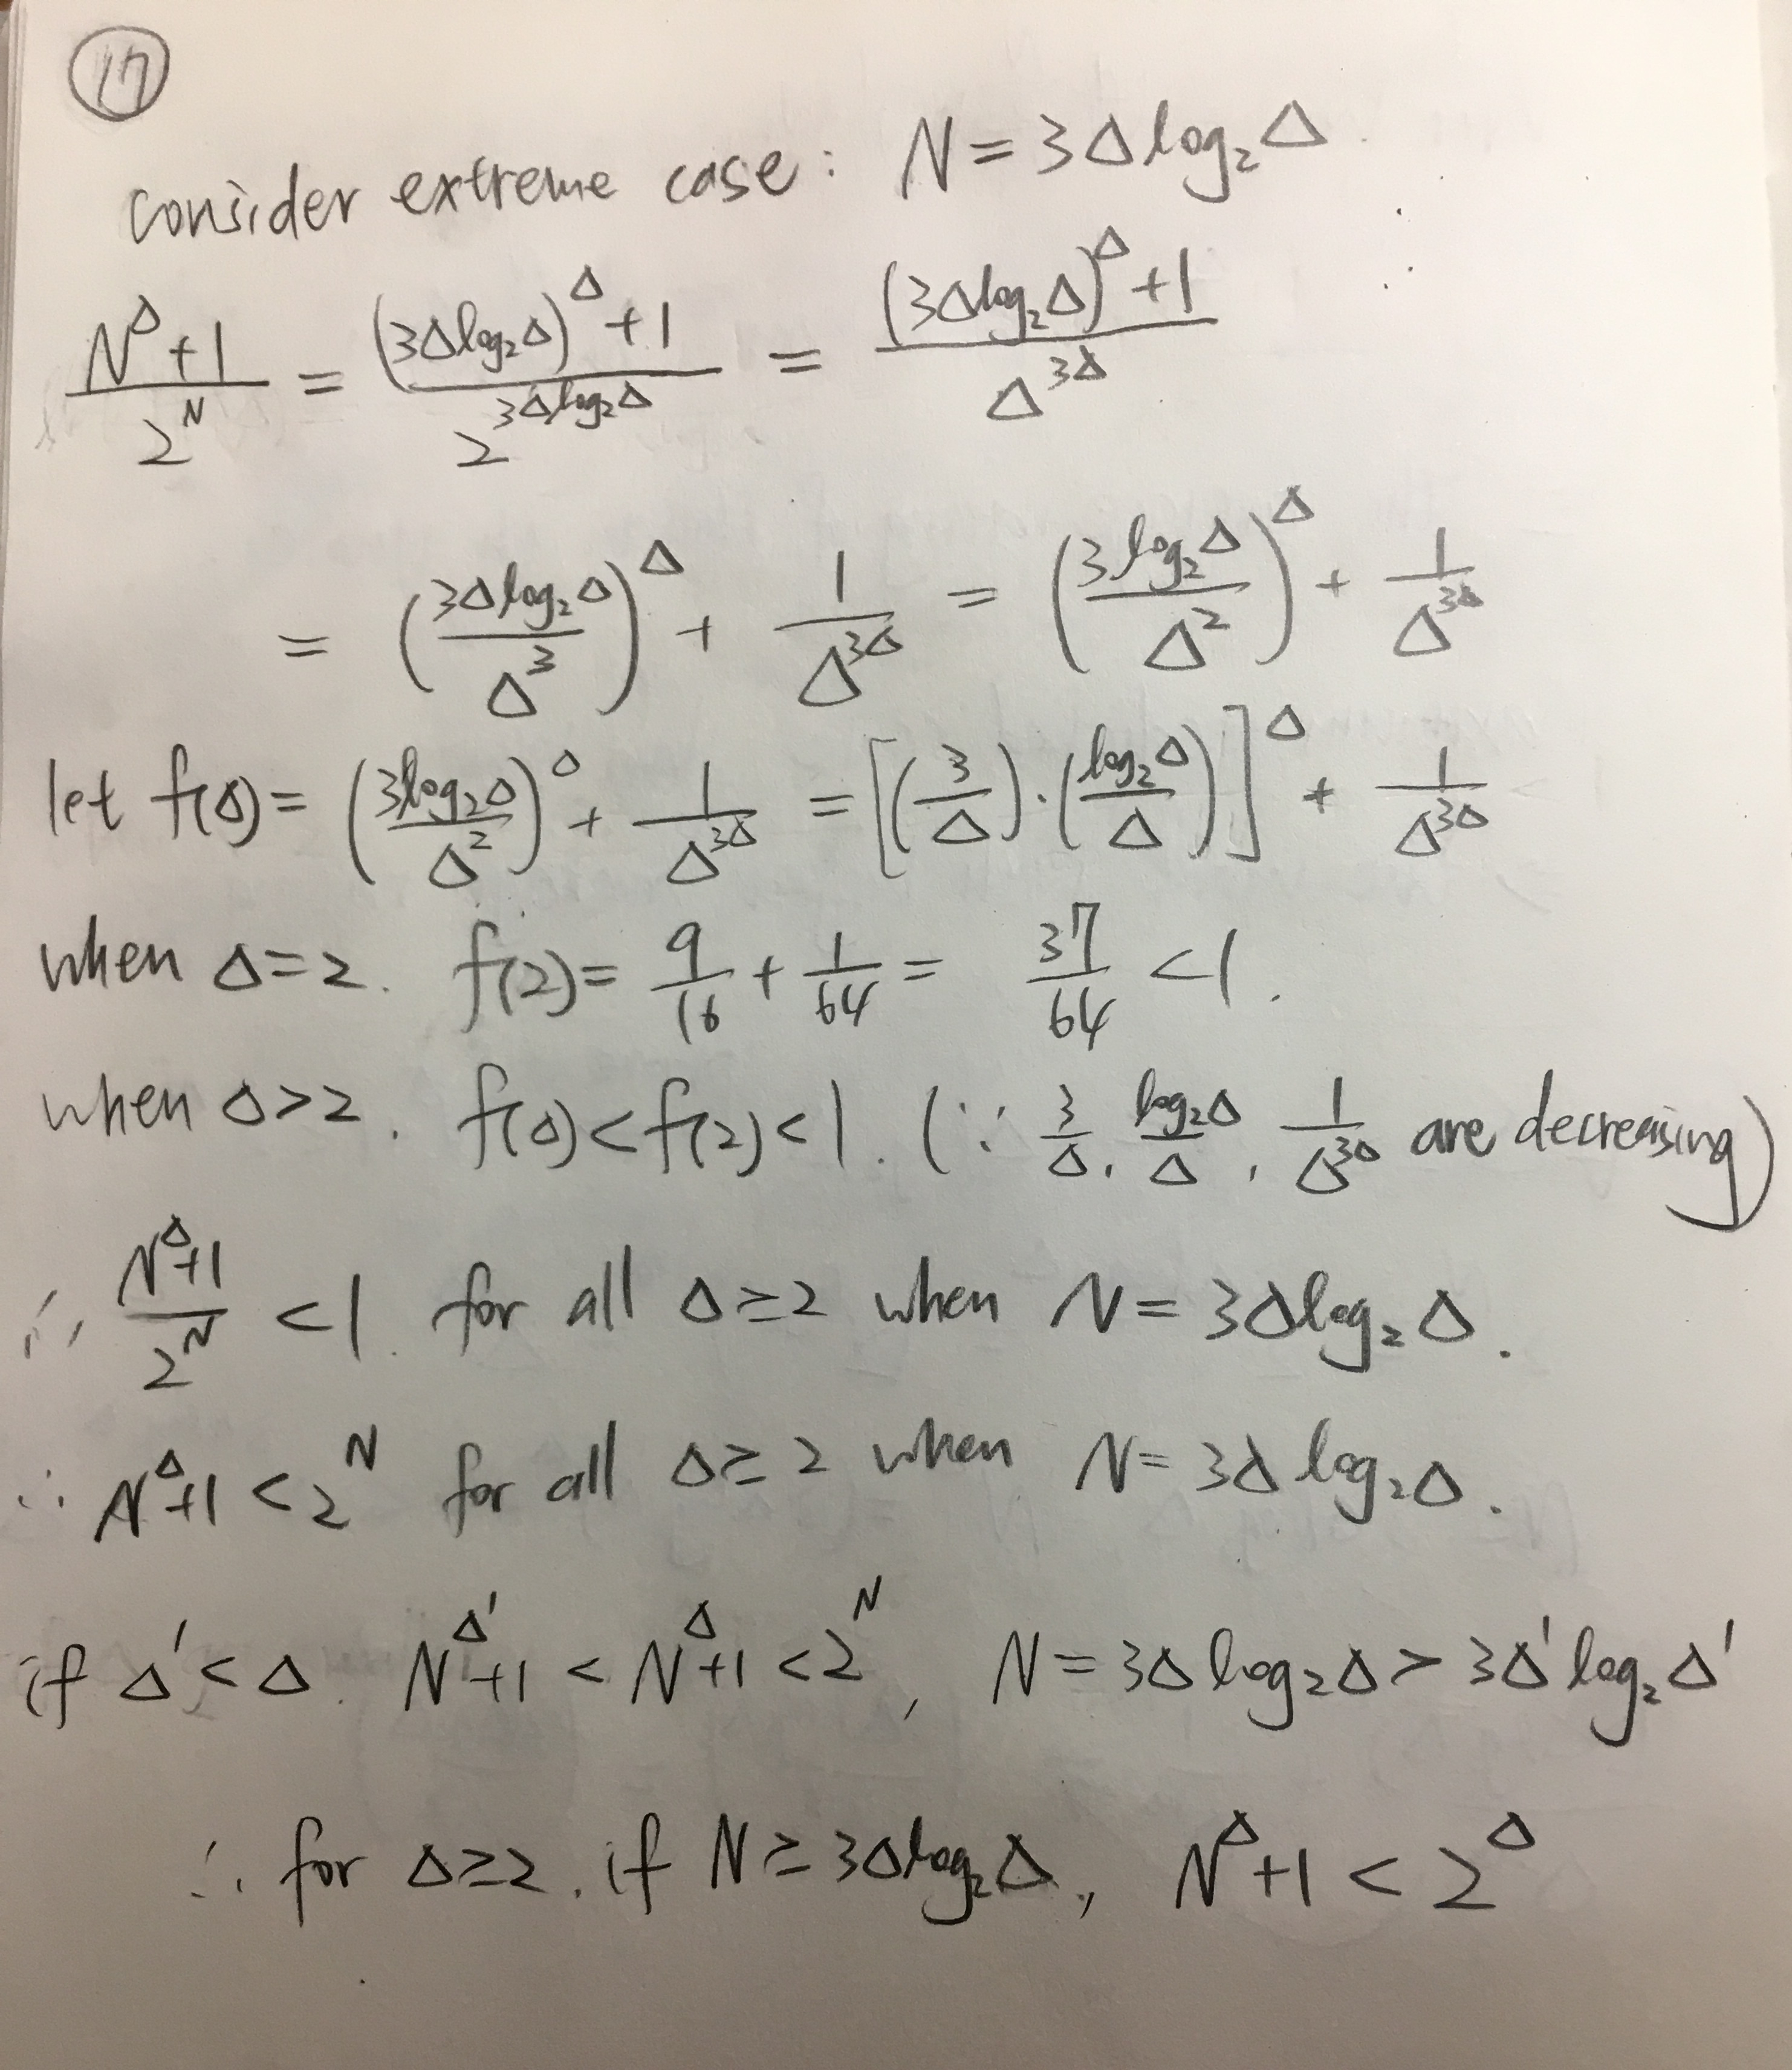 17
consider extreme case: N = 3Δlog₂Δ
(N^Δ+1)/2^N = ((3Δlog₂Δ)^Δ+1)/2^(3Δlog₂Δ) = ((3Δlog₂Δ)^Δ+1)/Δ^(3Δ)
= (3Δlog₂Δ/Δ³)^Δ + 1/Δ^(3Δ) = (3log₂Δ/Δ²)^Δ + 1/Δ^(3Δ)
let f(Δ) = (3log₂Δ/Δ²)^Δ + 1/Δ^(3Δ) = [(3/Δ)·(log₂Δ/Δ)]^Δ + 1/Δ^(3Δ)
when Δ=2. f(2) = 9/16 + 1/64 = 37/64 < 1.
when Δ>2. f(Δ) < f(2) < 1. (∵ 3/Δ, log₂Δ/Δ, 1/Δ^(3Δ) are decreasing)
∴ (N^Δ+1)/2^N < 1. for all Δ≥2 when N = 3Δlog₂Δ.
∴ N^Δ+1 < 2^N for all Δ≥2 when N = 3Δlog₂Δ.
if Δ' < Δ. N^Δ'+1 < N^Δ+1 < 2^N, N = 3Δlog₂Δ > 3Δ'log₂Δ'
∴ for Δ≥2. if N ≥ 3Δlog₂Δ, N^Δ+1 < 2^Δ